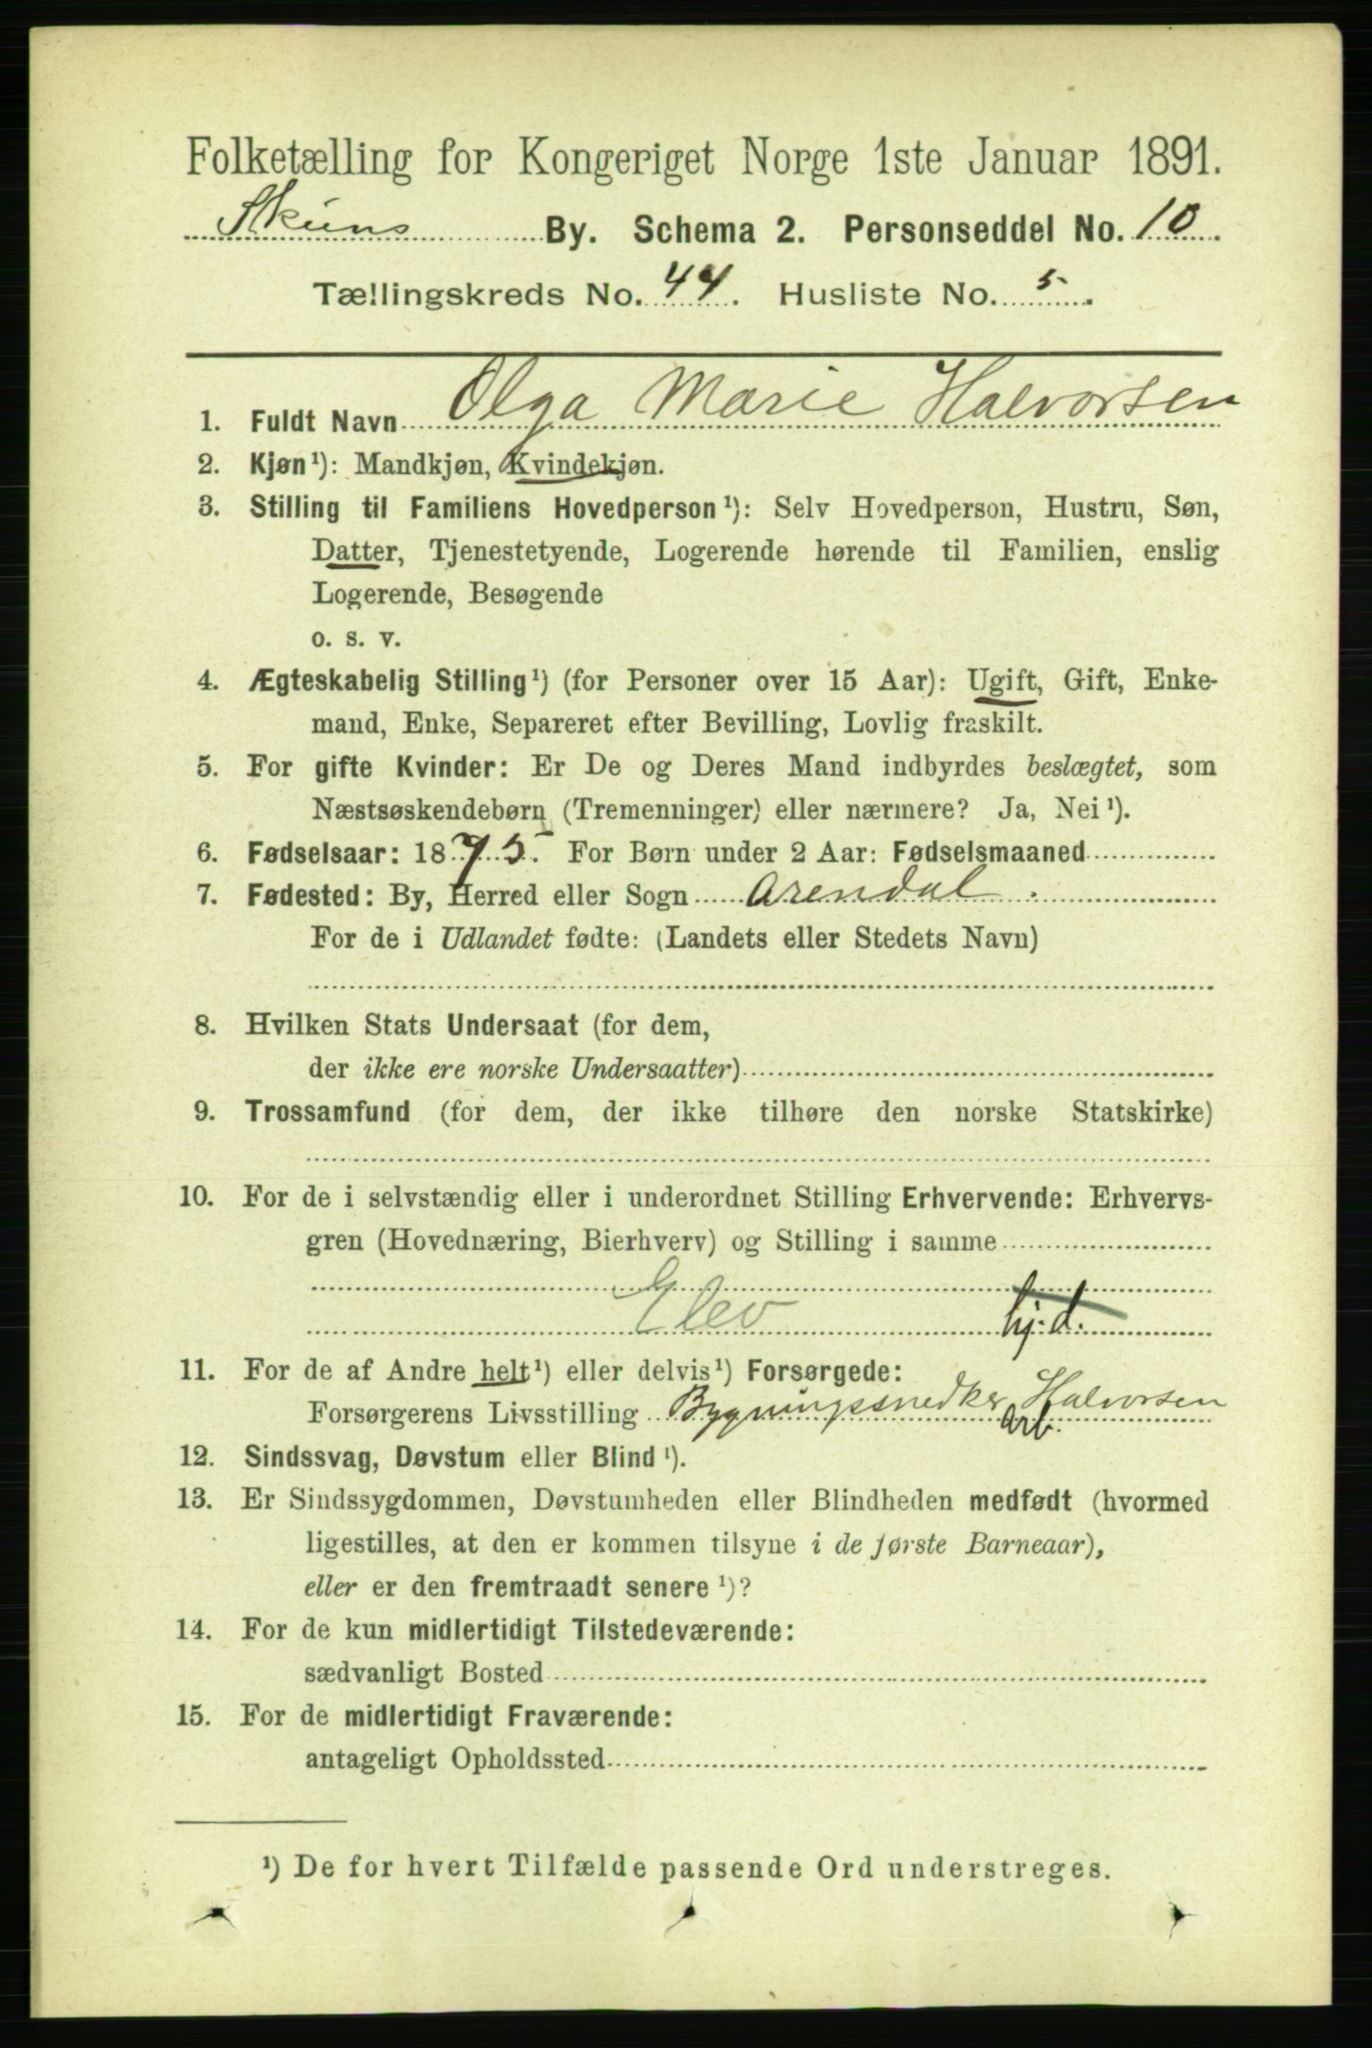 Folketælling for Kongeriget Norge 1ste Januar 1891.
Skiens By. Schema 2. Personseddel No. 10.
Tællingskreds No. 44. Husliste No. 5.
1. Fuldt Navn Olga Marie Halvorsen
2. Kjøn¹): Mandkjøn, Kvindekjøn.
3. Stilling til Familiens Hovedperson¹): Selv Hovedperson, Hustru, Søn,
Datter, Tjenestetyende, Logerende hørende til Familien, enslig
Logerende, Besøgende
o. s. v.
4. Ægteskabelig Stilling¹) (for Personer over 15 Aar): Ugift, Gift, Enke-
mand, Enke, Separeret efter Bevilling, Lovlig fraskilt.
5. For gifte Kvinder: Er De og Deres Mand indbyrdes beslægtet, som
Næstsøskendebørn (Tremenninger) eller nærmere? Ja, Nei¹).
6. Fødselsaar: 1875. For Børn under 2 Aar: Fødselsmaaned
7. Fødested: By, Herred eller Sogn Arendal.
For de i Udlandet fødte: (Landets eller Stedets Navn)
8. Hvilken Stats Undersaat (for dem,
der ikke ere norske Undersaatter)
9. Trossamfund (for dem, der ikke tilhøre den norske Statskirke)
10. For de i selvstændig eller i underordnet Stilling Erhvervende: Erhvervs-
gren (Hovednæring, Bierhverv) og Stilling i samme
Elev hj. d.
11. For de af Andre helt¹) eller delvis¹) Forsørgede:
Forsørgerens Livsstilling Bygningssnedker Halvorsen
Arb.
12. Sindssvag, Døvstum eller Blind¹).
13. Er Sindssygdommen, Døvstumheden eller Blindheden medfødt (hvormed
ligestilles, at den er kommen tilsyne i de første Barneaar),
eller er den fremtraadt senere¹)?
14. For de kun midlertidigt Tilstedeværende:
sædvanligt Bosted
15. For de midlertidigt Fraværende:
antageligt Opholdssted
¹) De for hvert Tilfælde passende Ord understreges.